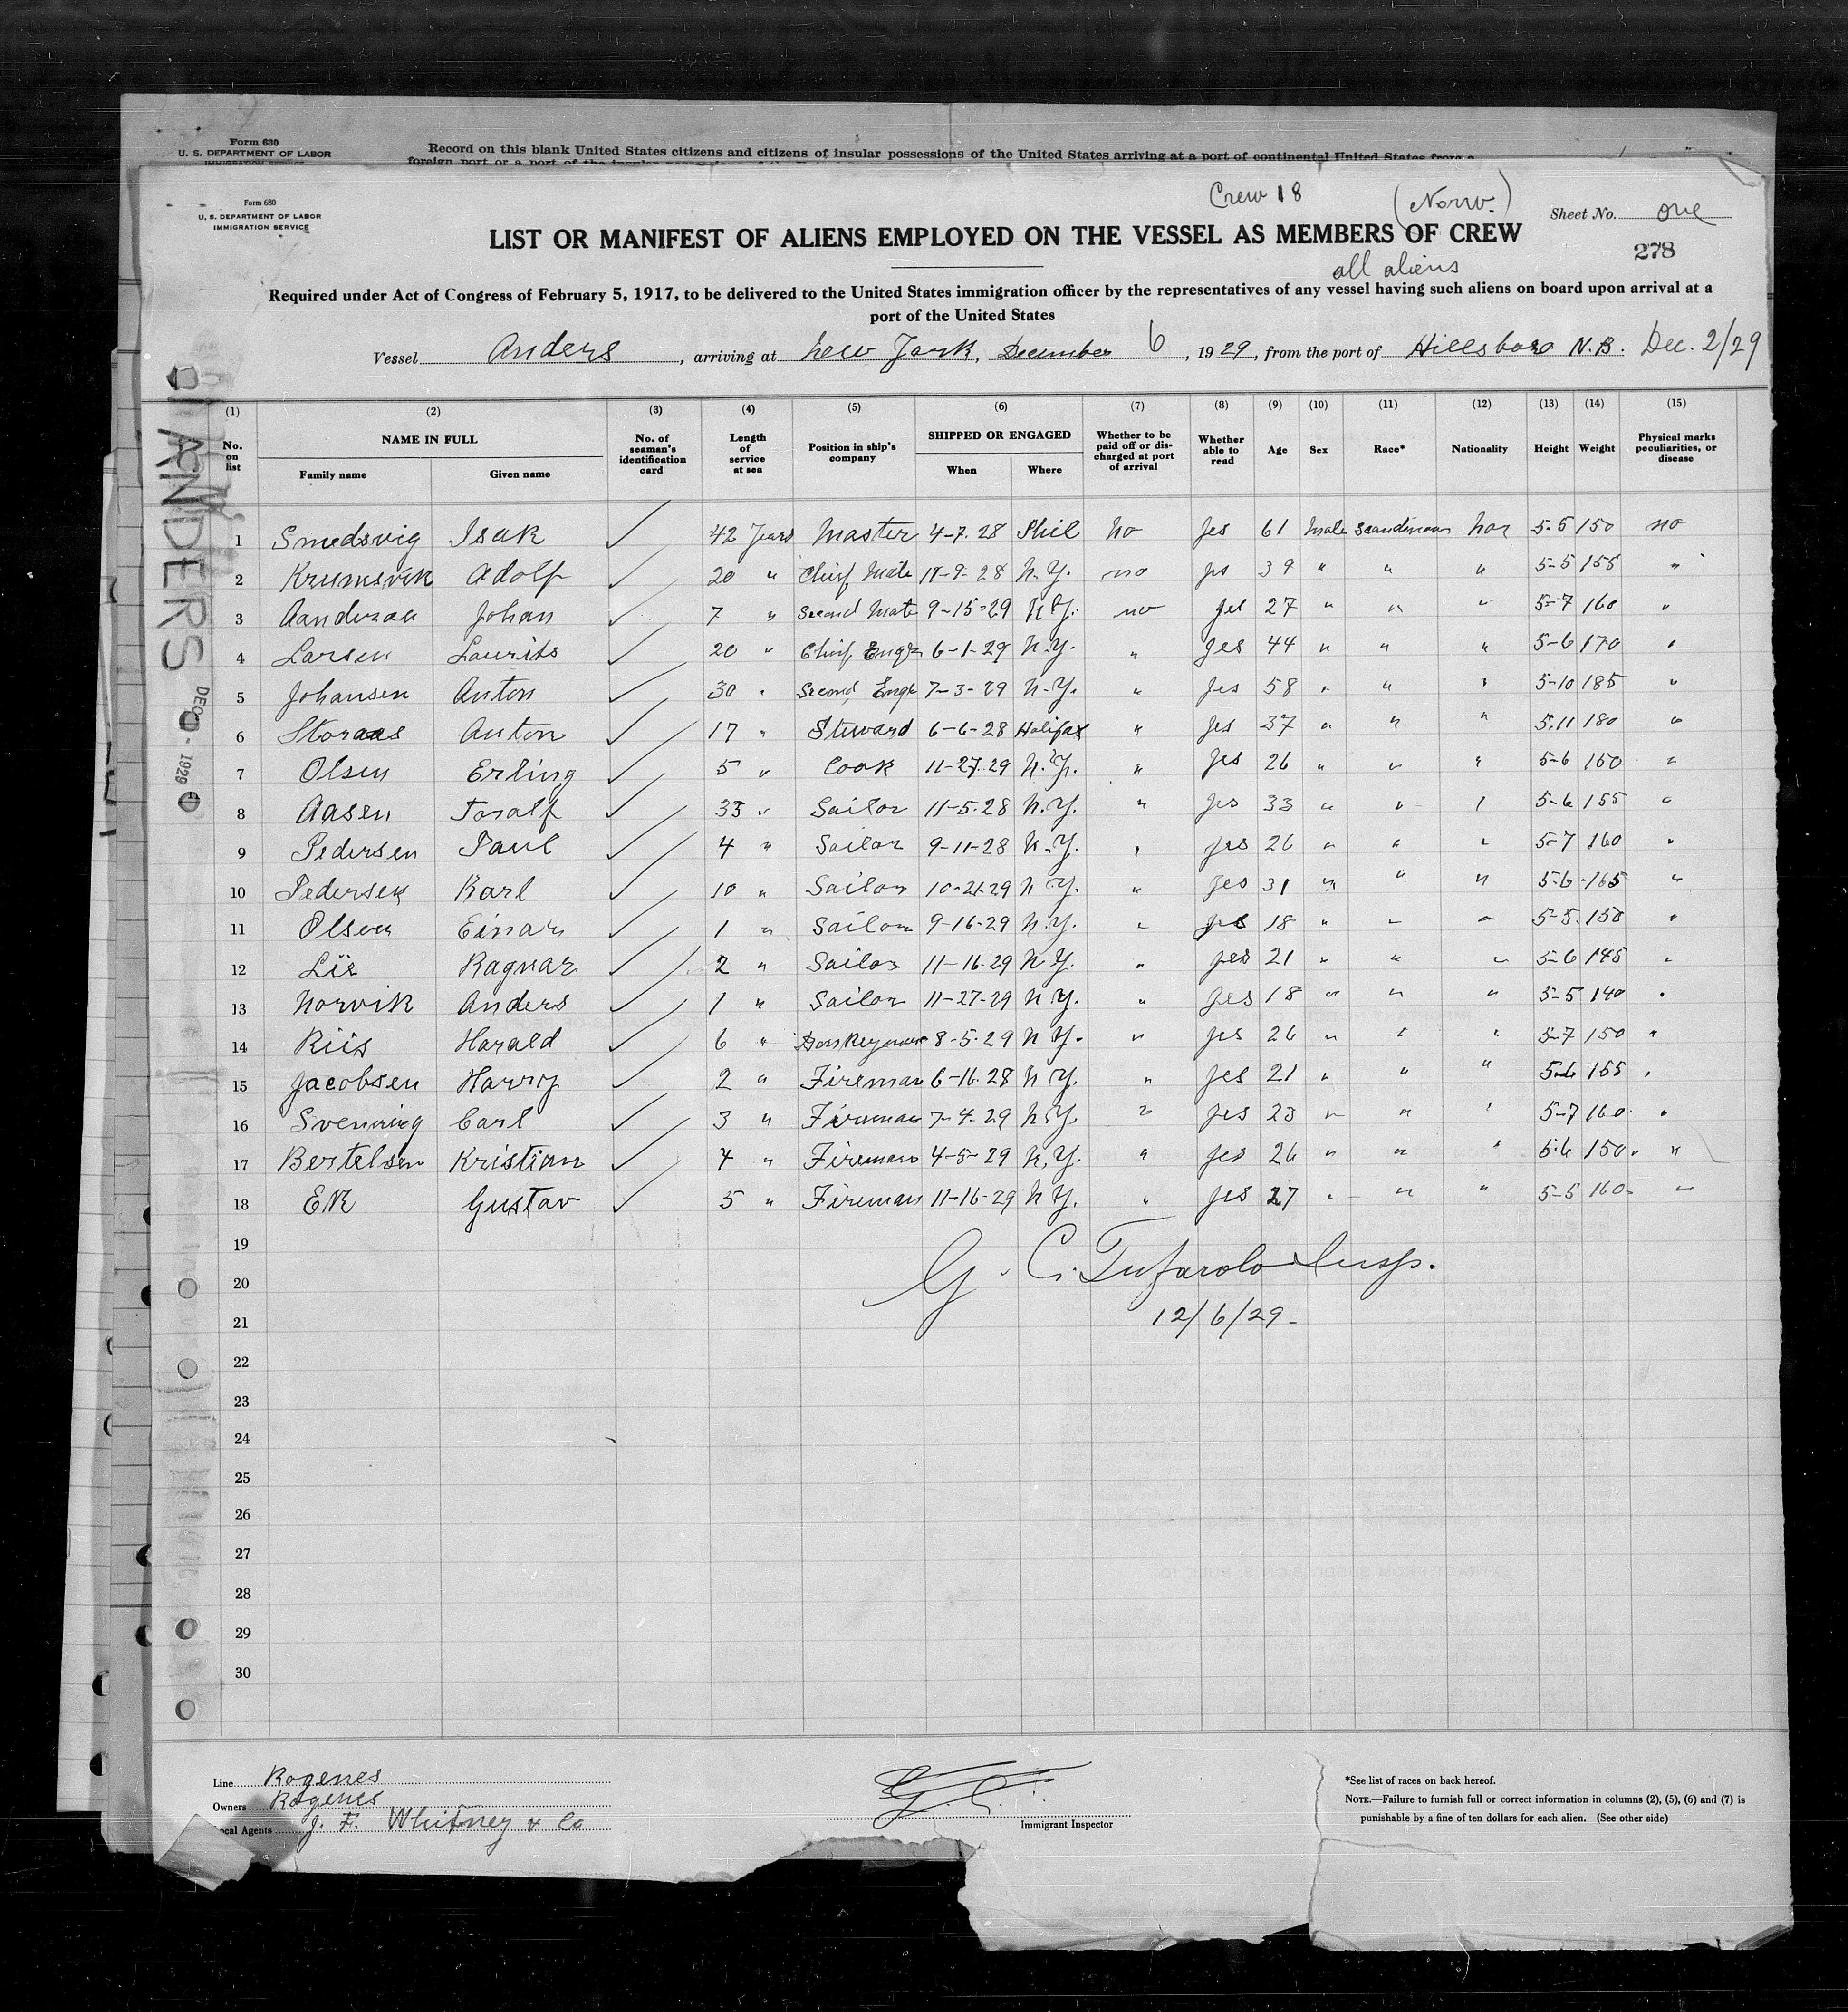 Form 630
U. S. DEPARTMENT OF LABOR
IMMIGRATION SERVICE
Record on this blank United States citizens and citizens of insular possessions of the United States arriving at a port of continental United States from a
foreign port or a port of the insular possessions of the
Form 680
U. S. DEPARTMENT OF LABOR
IMMIGRATION SERVICE
Crew 18 (Norw.) Sheet No. one
LIST OR MANIFEST OF ALIENS EMPLOYED ON THE VESSEL AS MEMBERS OF CREW
278
all aliens
Required under Act of Congress of February 5, 1917, to be delivered to the United States immigration officer by the representatives of any vessel having such aliens on board upon arrival at a
port of the United States
Vessel Anders, arriving at New York, December 6, 1929, from the port of Hillsboro N.B. Dec. 2/29
ANDERS
DEC - 1929
(1) (2) (3) (4) (5) (6) (7) (8) (9) (10) (11) (12) (13) (14) (15)
No. on list NAME IN FULL No. of seaman's identification card Length of service at sea Position in ship's company SHIPPED OR ENGAGED Whether to be paid off or discharged at port of arrival Whether able to read Age Sex Race* Nationality Height Weight Physical marks peculiarities, or disease
Family name Given name When Where
1 Smedsvig Isak ✓ 42 Years Master 4-7-28 Phil No Yes 61 Male Scandinavian Nor 5-5 150 no
2 Krumsvik Adolf ✓ 20 " Chief Mate 11-9-28 N.Y. no yes 39 " " " 5-5 155 "
3 Aanderaa Johan ✓ 7 " Second Mate 9-15-29 N.Y. no yes 27 " " " 5-7 160 "
4 Larsen Laurits ✓ 20 " Chief Engr 6-1-29 N.Y. " yes 44 " " " 5-6 170 "
5 Johansen Anton ✓ 30 " Second Engr 7-3-29 N.Y. " yes 58 " " " 5-10 185 "
6 Storaas Anton ✓ 17 " Steward 6-6-28 Halifax " yes 37 " " " 5-11 180 "
7 Olsen Erling ✓ 5 " Cook 11-27-29 N.Y. " yes 26 " " " 5-6 150 "
8 Aasen Toralf ✓ 33 " Sailor 11-5-28 N.Y. " yes 33 " " " 5-6 155 "
9 Pedersen Paul ✓ 4 " Sailor 9-11-28 N.Y. " yes 26 " " " 5-7 160 "
10 Pedersen Karl ✓ 10 " Sailor 10-21-29 N.Y. " yes 31 " " " 5-6 165 "
11 Olsen Einar ✓ 1 " Sailor 9-16-29 N.Y. " yes 18 " " " 5-5 150 "
12 Lie Ragnar ✓ 2 " Sailor 11-16-29 N.Y. " yes 21 " " " 5-6 145 "
13 Norvik Anders ✓ 1 " Sailor 11-27-29 N.Y. " yes 18 " " " 5-5 140 "
14 Riis Harald ✓ 6 " Donkeyman 8-5-29 N.Y. " yes 26 " " " 5-7 150 "
15 Jacobsen Harry ✓ 2 " Fireman 6-16-28 N.Y. " yes 21 " " " 5-6 155 "
16 Svenning Carl ✓ 3 " Fireman 7-4-29 N.Y. " yes 23 " " " 5-7 160 "
17 Bertelsen Kristian ✓ 4 " Fireman 4-5-29 N.Y. " yes 26 " " " 5-6 150 "
18 Ek Gustav ✓ 5 " Fireman 11-16-29 N.Y. " yes 27 " " " 5-5 160 "
19
G. C. Tufarolo Insp.
20
12/6/29
21
22
23
24
25
26
27
28
29
30
Line Rogenes
Owners Rogenes
Local Agents J. F. Whitney & Co
G. C.
Immigrant Inspector
*See list of races on back hereof.
NOTE.—Failure to furnish full or correct information in columns (2), (5), (6) and (7) is
punishable by a fine of ten dollars for each alien. (See other side)